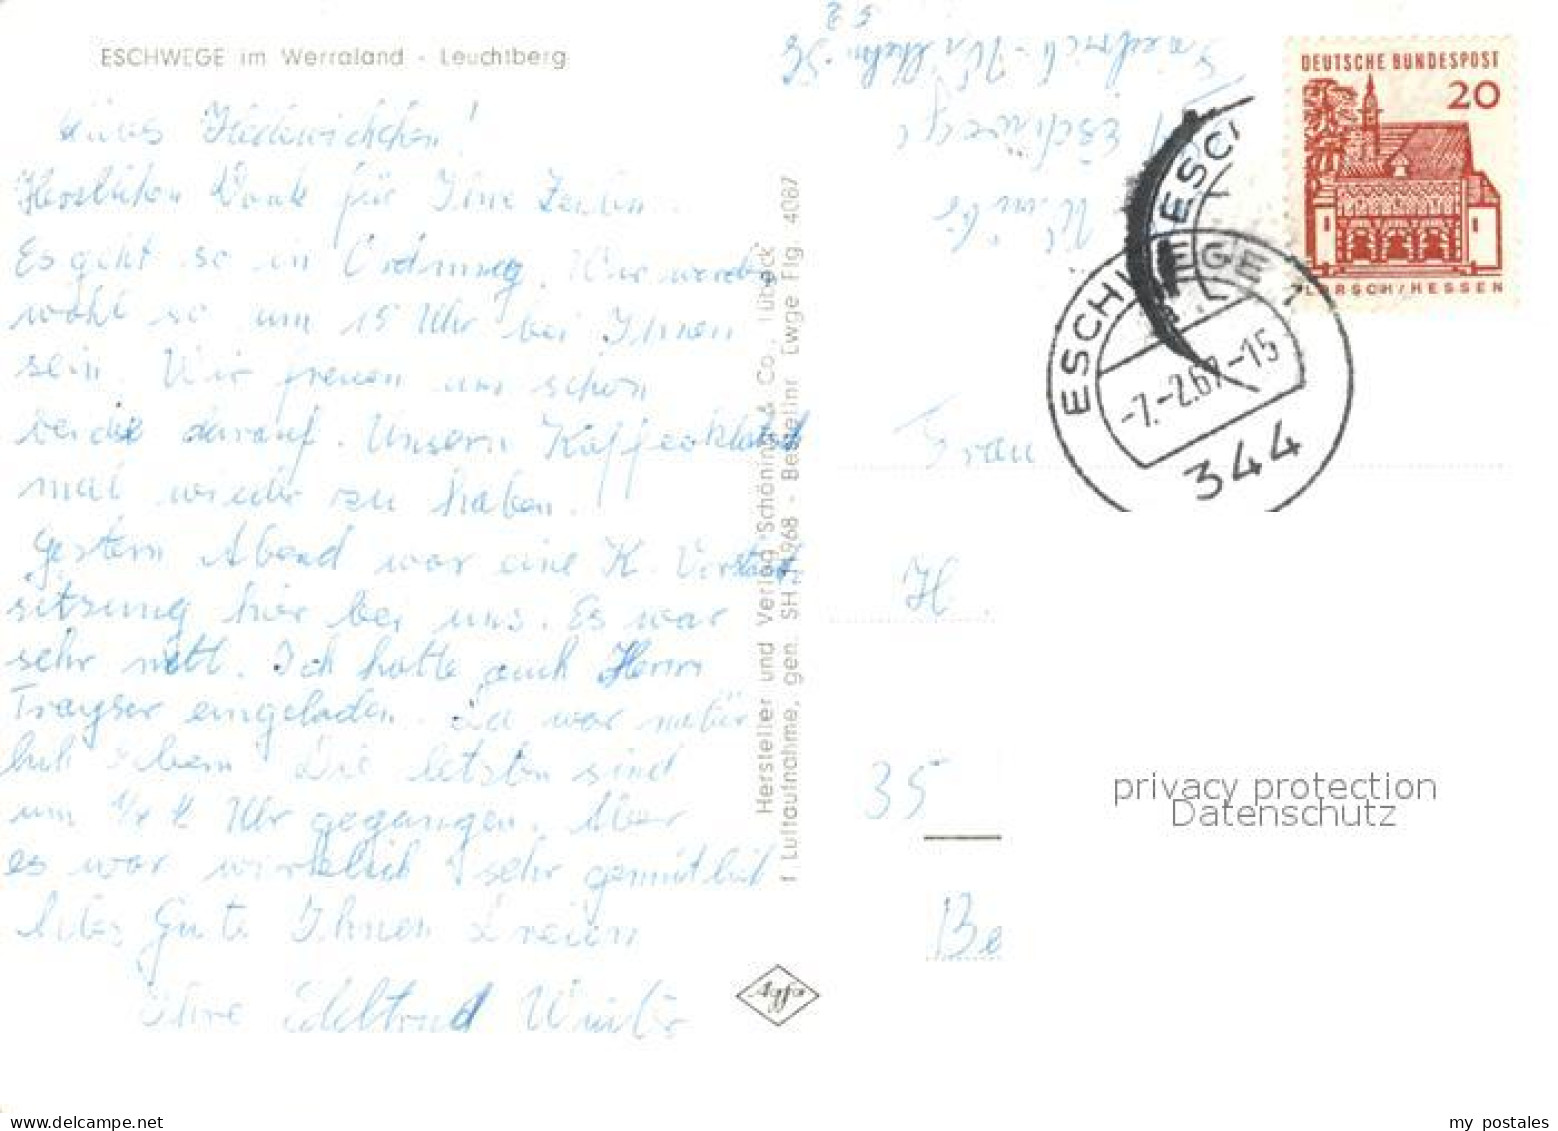 ESCHWEGE im Werraland - Leuchtberg
Herzlichen Dank für Ihre Zeilen
Es geht so in Ordnung. Wir werden
wohl so um 15 Uhr bei Ihnen
sein. Wir freuen uns schon
beide darauf. Unsern Kaffeeklatsch
mal wieder zu haben.
Gestern Abend war eine K. Vorstands
sitzung hier bei uns. Es war
sehr nett. Ich hatte auch Herrn
Trayser eingeladen. Da war natür
lich Leben. Die letzten sind
um Uhr gegangen. Aber
es war wirklich sehr gemütlich
Alles Gute Ihnen Dreien
Ihre Edeltraud Winter
Hersteller und Verlag Schöning & Co., Lübeck
f. Luftaufnahme, gen. SH 1968 - Bestellnr Ewge Flg. 4087
Agfa
Winter
Eschwege
Friedrich-Wilhelm-St.
52
DEUTSCHE BUNDESPOST
20
LORSCH/HESSEN
ESCHWEGE 1
-7.-2.67-15
344
Frau
H.
35
Be
privacy protection
Datenschutz
my postales